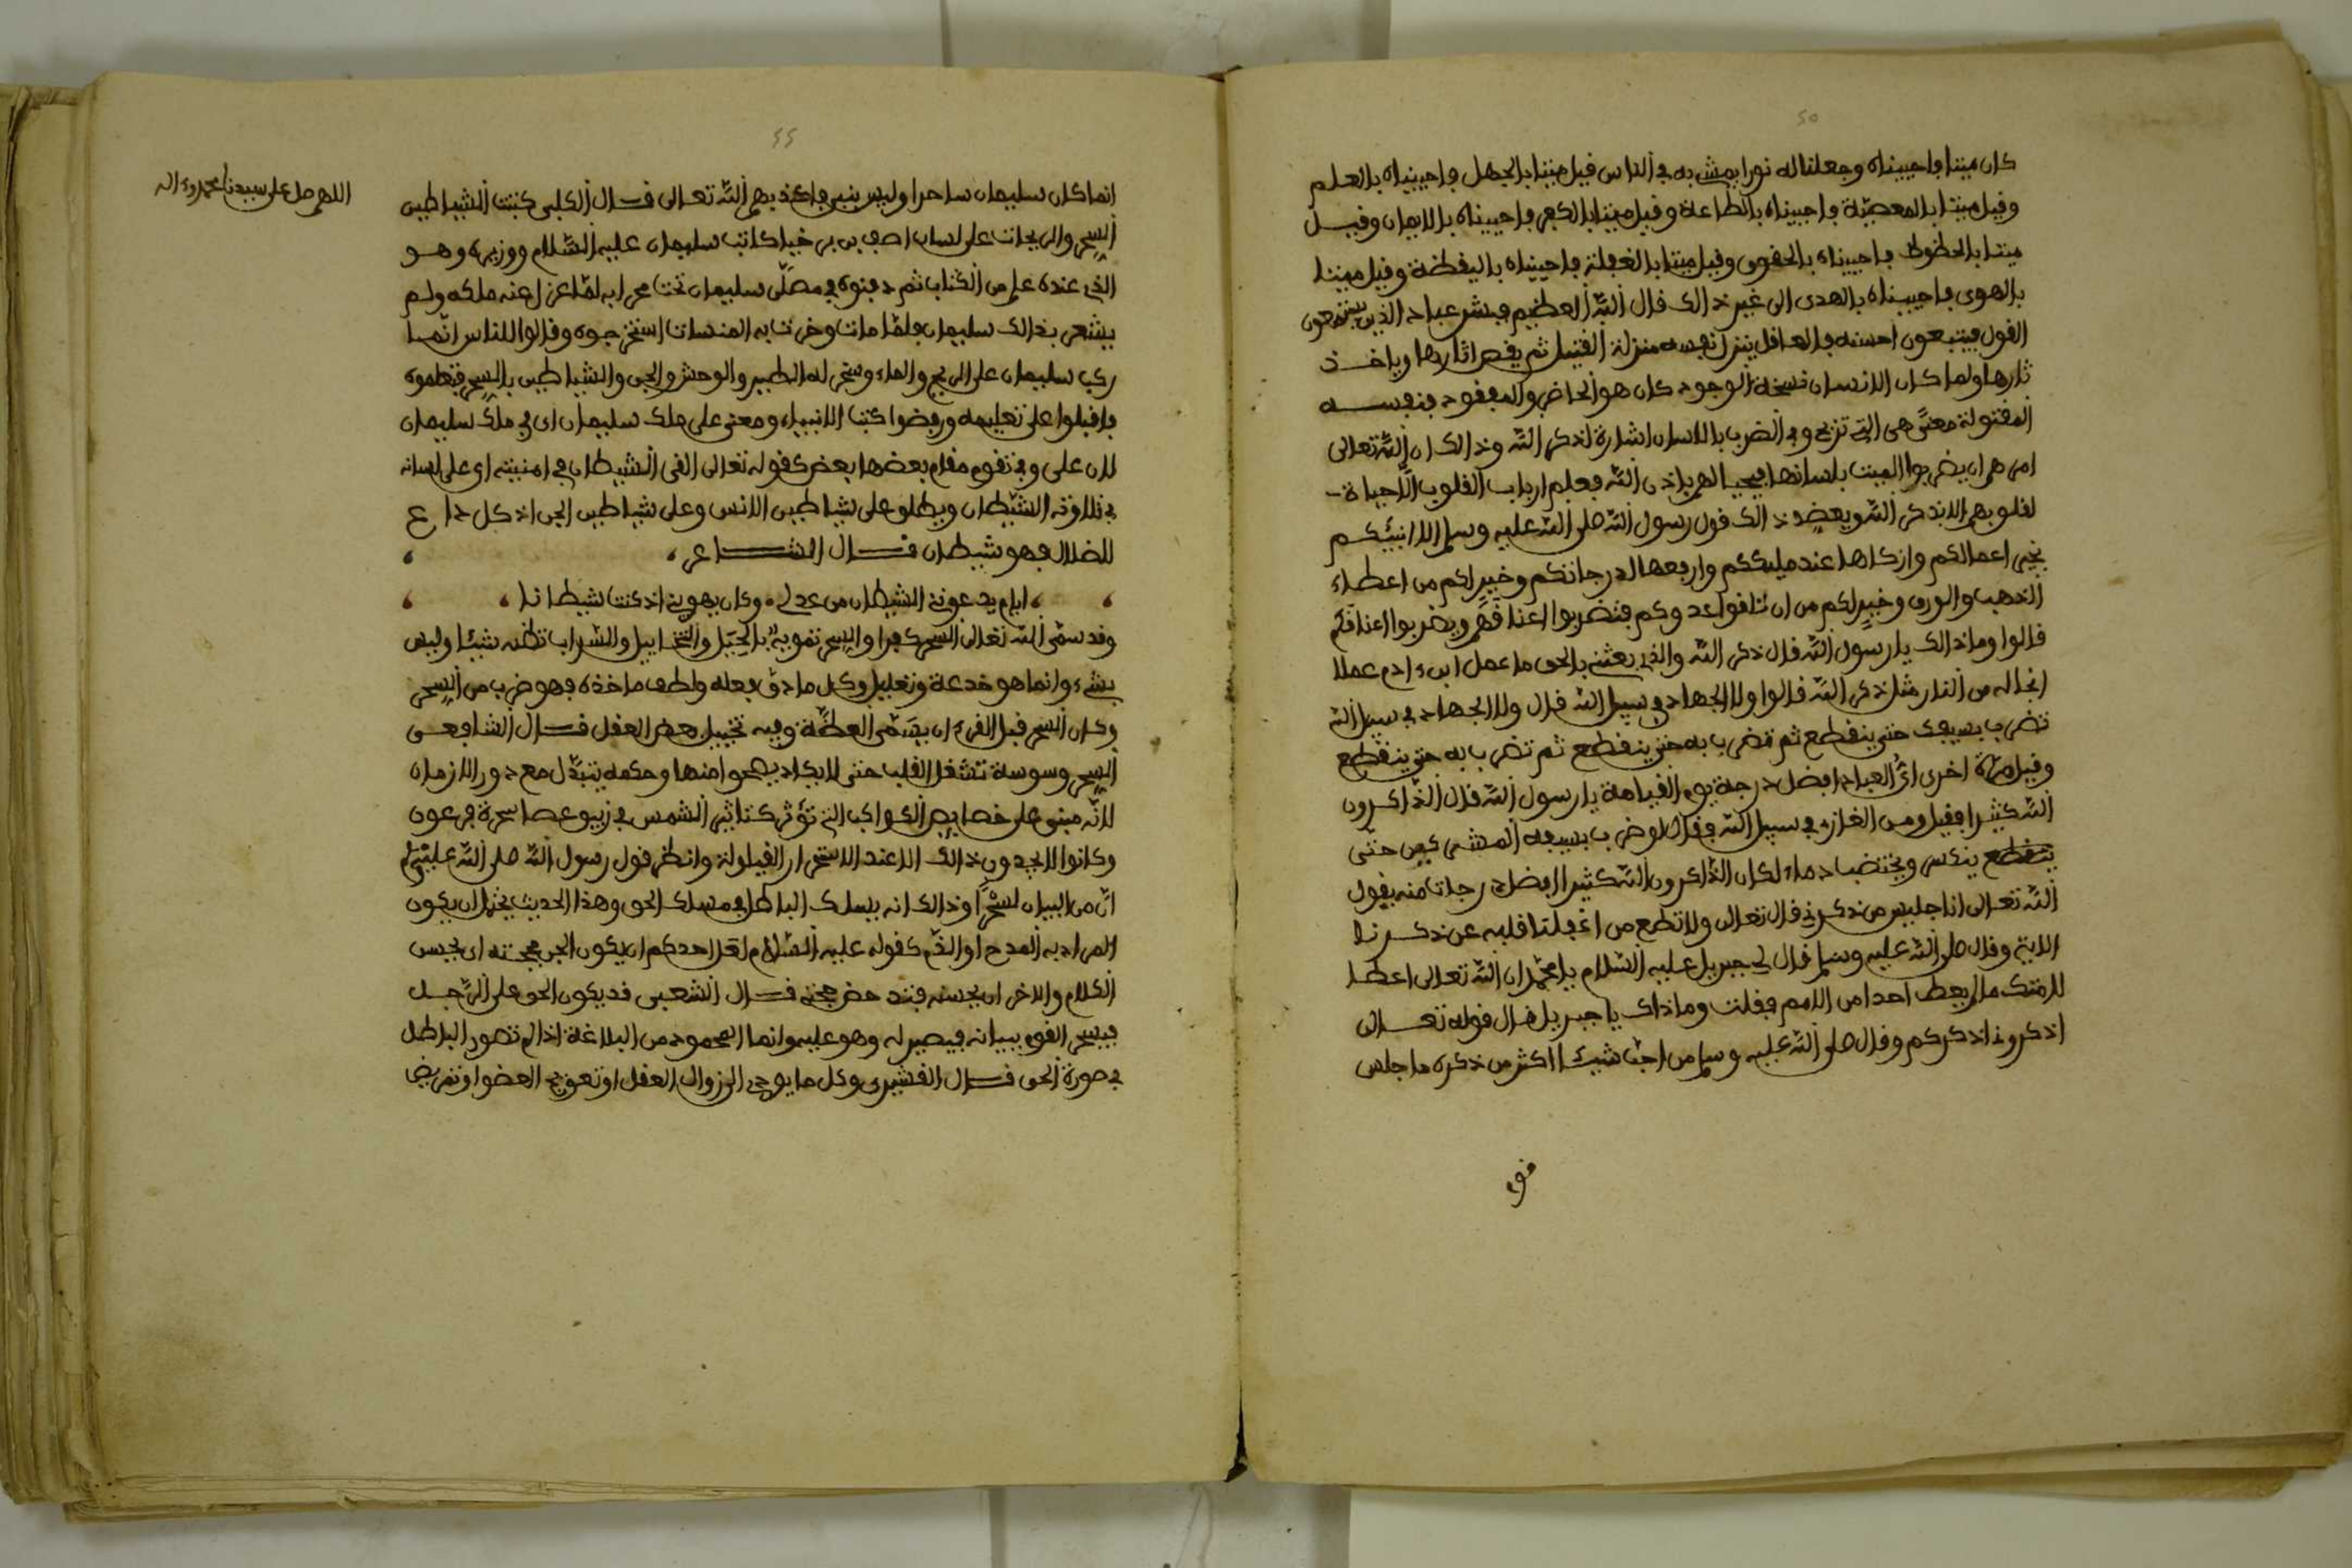 ٤٥
كان ميتا فاحييناه وجعلنا له نورا يمشي به في الناس قيل ميتا بالجهل فاحييناه بالعلم
وقيل ميتا بالمعصية فاحييناه بالطاعة وقيل ميتا بالكفر فاحييناه بالايمان وقيل
ميتا بالحظوظ فاحييناه بالحقوق وقيل ميتا بالغفلة فاحييناه باليقظة وقيل ميتا
بالهوى فاحييناه بالهدى الى غير ذالك قال الله العظيم فبشر عباد الذين يستمعون
القول فيتبعون احسنه فالعاقل ينزل نفسه منزلة القتيل ثم يقص اثارها وياخذ
ثارها ولما كان الانسان نسخة الوجود كان هو الحاضر والمفقود فنفسه
المقتولة معنًى هي التي تزيح وفي الضرب باللسان اشارة لذكر الله وذالك ان الله تعالى
امرهم ان يضربوا الميت بلسانها فيحيا لهم باذن الله فعلم ارباب القلوب الّا حياة
لقلوبهم الا بذكر الله ويعضد ذالك قول رسول الله صلى الله عليه وسلم الا انبئكم
بخير اعمالكم وازكاها عند مليككم وارفعها لدرجاتكم وخير لكم من اعطاء
الذهب والورق وخير لكم من ان تلقوا عدوكم فتضربوا اعناقهم ويضربوا اعناقكم
قالوا وما ذالك يا رسول الله قال ذكر الله والذي بعثني بالحق ما عمل ابن ءادم عملا
انجا له من النار مثل ذكر الله قالوا ولا الجهاد في سبيل الله قال ولا الجهاد في سبيل الله
تضرب بسيفك حتى ينقطع ثم تضرب به حتى ينقطع ثم تضرب به حتى ينقطع
وقيل مرة اخرى اىُّ العباد افضل درجة يوم القيامة يا رسول الله قال الذاكرون
الله كثيرا فقيل ومن الغازي في سبيل الله فقال لو ضرب بسيفه المشركين حتى
ينقطع ينكس ويختضب دماء لكان الذاكرون الله كثيرا افضل درجات منه يقول
الله تعالى انا جليس من ذكرني قال تعالى ولا تطع من اغفلنا قلبه عن ذكرنا
الاية وقال صلى الله عليه وسلم قال لي جبريل عليه السلام يا محمد ان الله تعالى اعطا
لامتك ما لم يعط احدا من الامم فقلت وما ذاك يا جبريل قال قوله تعالى
اذكروني اذكركم وقال صلى الله عليه وسلم من احب شيئا اكثر من ذكره ما جلس
٤٤
اللهم صل على سيدنا محمد وءاله
انما كان سليمان ساحرا وليس بنبي فاكذبهم الله تعالى قال الكلبي كتبت الشياطين
السحر والنيرنجات على لسان اصف بن برخيا كاتب سليمان عليه السلام ووزيره وهو
الذي عنده علم من الكتاب ثم دفنوه في مصلّى سليمان تحت محرابه لمّا عزل عنه ملكه ولم
يشعر بذالك سليمان فلمّا مات وخرت به المنسات استخرجوه وقالوا للناس انّما
ركب سليمان على الريح والماء وسخر له الطير والوحش والجن والشياطين بالسحر فتعلموه
فاقبلوا على تعليمه ورفضوا كتب الانبياء ومعنى على ملك سليمان اى في ملك سليمان
لان على وفي تقوم مقام بعضها بعض كقوله تعالى القى الشيطان في امنيته اى على لسانه
في تلاوته الشيطان ويطلق على شياطين الانس وعلى شياطين الجن اذ كل داع
للضلال فهو شيطان قال الشاعر
ايام يدعونني الشيطان من غزلي وكان يهوينني اذ كنت شيطانا
وقد سمّى الله تعالى السحر كفرا والسحر تمويه بالحيل والتخاييل والسراب تظنه شيئا وليس
بشيء وانما هو خدعة وتعليل وكل ما دقّ فعله ولطف ماخذه فهو ضرب من السحر
وكان السحر قبل القرءان يسمّى العظة وفيه تخييل هضر العقل قال الشافعي
السحر وسوسة تشغل القلب حتى لا يكاد يصحوا منها وحكمه يتبدّل مع دور الازمان
لانّه مبنى على خصايص الكواكب التي تؤثر كتاثير الشمس في زيبو عصا سحرة فرعون
وكانوا لا يجدون ذالك الا عند الاستحرار القيلولة وانظر قول رسول الله صلى الله عليه
انّ من البيان لسحرًا وذالك انه يسلك الباطل في مسلك الحق وهذا الحديث يحتمل ان يكون
المراد به المدح او الذم كقوله عليه السلام لعل احدكم ان يكون الحن بحجته اى يحسن
الكلام والاخر لا يحسنه فتدحض حجته قال الشعبي قد يكون الحق على الرجل
فيسحر القوم ببيانه فيصير له وهو عليه وانما المحمود من البلاغة اذا لم تصور الباطل
في صورة الحق قال القشيري وكل ما يوجى الى زوال العقل او تعويج العضو او تمريض